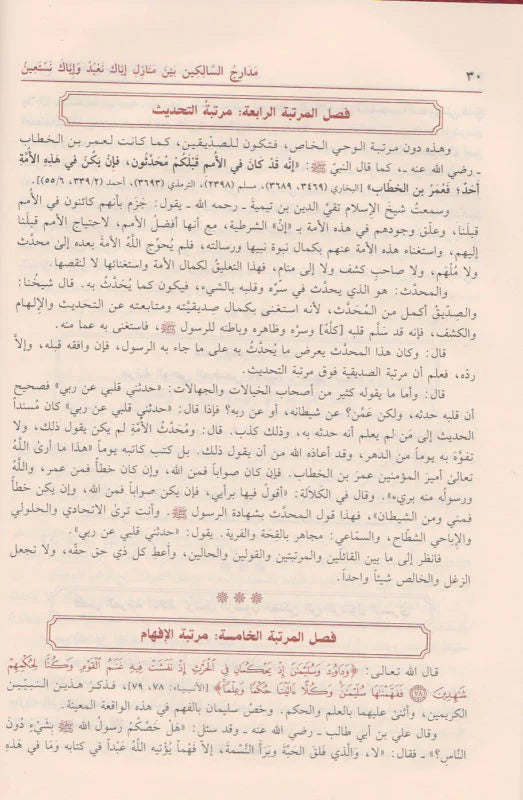 ٣٠
مَدَارِجُ السَّالِكِين بَيْنَ مَنَازِلِ إِيَّاكَ نَعْبُدُ وَإِيَّاكَ نَسْتَعِينُ
فصل المرتبة الرابعة: مرتبةُ التحديث
وهذه دون مرتبة الوحي الخاص، فتكون للصدِّيقين، كما كانت لعمر بن الخطاب
ـ رضي الله عنه ـ، كما قال النبيّ ﷺ: «إنَّه قَدْ كَانَ في الأُمم قَبْلَكُمْ مُحَدَّثُون، فَإِنْ يَكُنْ في هَذِهِ الأُمَّةِ
أَحَدٌ؛ فَعُمَر بن الخطاب» [البخاري (٣٤٦٩، ٣٦٨٩)، مسلم (٢٣٩٨)، الترمذي (٣٦٩٣)، أحمد (٣٣٩/٢، ٥٥/٦)].
وسمعتُ شيخَ الإسلام تقيَّ الدين بن تيمية ـ رحمه الله ـ يقول: جَزَم بأنهم كائنون في الأُمم
قبلَنا، وعلَّق وجودهم في هذه الأمة بـ «إنْ» الشرطية، مع أنها أفضلُ الأُمم، لاحتياج الأُمم قبلَنا
إليهم، واستغناء هذه الأمة عنهم بكمال نبوة نبيها ورسالته، فلم يُحوِّج اللَّهُ الأُمةَ بعده إلى محدَّث
ولا مُلْهَم، ولا صاحب كشف ولا إلى منام، فهذا التعليقُ لكمال الأمة واستغنائها لا لنقصها.
والمحدَّث: هو الذي يحدَّث في سرِّه وقلبه بالشيء، فيكون كما يُحَدَّثُ به. قال شيخُنا:
والصِدِّيقُ أكمل من المُحَدَّث، لأنه استغنى بكمال صِديقيَّته ومتابعته عن التحديث والإلهام
والكشف، فإنه قد سَلَّم قلبه [كلَّهُ] وسرَّه وظاهره وباطنه للرسول ﷺ، فاستغنى به عما منه.
قال: وكان هذا المحدَّث يعرض ما يُحدَّثُ به على ما جاء به الرسول، فإن وافقه قبله، وإلاَّ
ردَّه، فعلم أن مرتبة الصديقية فوق مرتبة التحديث.
قال: وأما ما يقوله كثير من أصحاب الخيالات والجهالات: «حدثني قلبي عن ربي» فصحيح
أن قلبه حدثه، ولكن عَمَّن؟ عن شيطانه، أو عن ربه؟ فإذا قال: «حدثني قلبي عن ربي» كان مُسنِداً
الحديث إلى مَن لم يعلم أنه حدثه به، وذلك كذب. قال: ومُحَدَّثُ الأُمَّةِ لم يكن يقول ذلك، ولا
تفوَّه به يوماً من الدهر، وقد أعاذه الله من أن يقول ذلك. بل كتب كاتبه يوماً «هذا ما أرىٰ اللَّهُ
تعالىٰ أميرَ المؤمنين عمرَ بن الخطاب. فإن كان صواباً فمن الله، وإن كان خطأً فمن عمر، واللَّهُ
ورسوله منه بريء». وقال في الكَلاَلة: «أقول فيها برأيي، فإن يكن صواباً فمن الله، وإن يكن خطأً
فمني ومن الشيطان»، فهذا قول المحدَّث بشهادة الرسول ﷺ. وأنت ترىٰ الاتحادي والحلولي
والإباحي الشطَّاح، والسمَّاعي: مجاهر بالقِحة والفرية. يقول: «حدثني قلبي عن ربي».
فانظر إلى ما بين القائلَين والمرتبتين والقولين والحالين، وأعطِ كل ذي حق حقَّه، ولا تجعل
الزغل والخالص شيئاً واحداً.
***
فصل المرتبة الخامسة: مرتبة الإفهام
قال الله تعالى: ﴿وَدَاوُدَ وَسُلَيْمَٰنَ إِذْ يَحْكُمَانِ فِي ٱلْحَرْثِ إِذْ نَفَشَتْ فِيهِ غَنَمُ ٱلْقَوْمِ وَكُنَّا لِحُكْمِهِمْ
شَٰهِدِينَ ﴿٧٨﴾ فَفَهَّمْنَٰهَا سُلَيْمَٰنَ وَكُلًّا ءَاتَيْنَا حُكْمًا وَعِلْمًا﴾ [الأنبياء: ٧٨، ٧٩]، فذكرَ هذين النبيَّين
الكريمين، وأثنىٰ عليهما بالعلم والحكم. وخصَّ سليمان بالفهم في هذه الواقعة المعينة.
وقال علي بن أبي طالب ـ رضي الله عنه ـ وقد سئل: «هَلْ خَصَّكُمْ رسولُ الله ﷺ بِشَيْءٍ دُونَ
النَّاسِ؟» ـ فقال: «لا، وَالَّذي فَلَقَ الحَبَّةَ وبَرَأَ النَّسْمَةَ، إلاَّ فَهْماً يُؤْتيه اللَّهُ عَبْداً في كتابه وَمَا في هَذِهِ